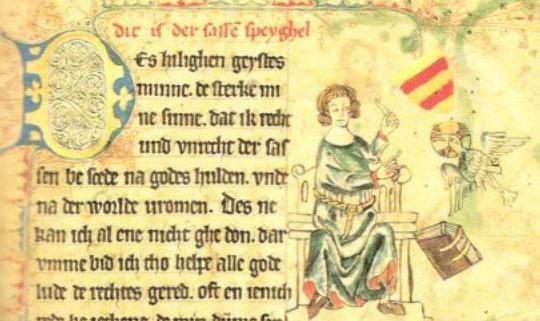 dit is der sasse speyghel
Des hilighen geystes
minne. de sterke mi
ne sinne. dat ik recht
und vnrecht der sas
sen be scede na godes hulden. vnde
na der worlde vromen. Des ne
kan ich al ene nicht ghe don. dar
vmme bid ich tho helpe alle gode
lude de rechtes gered. oft en ienich